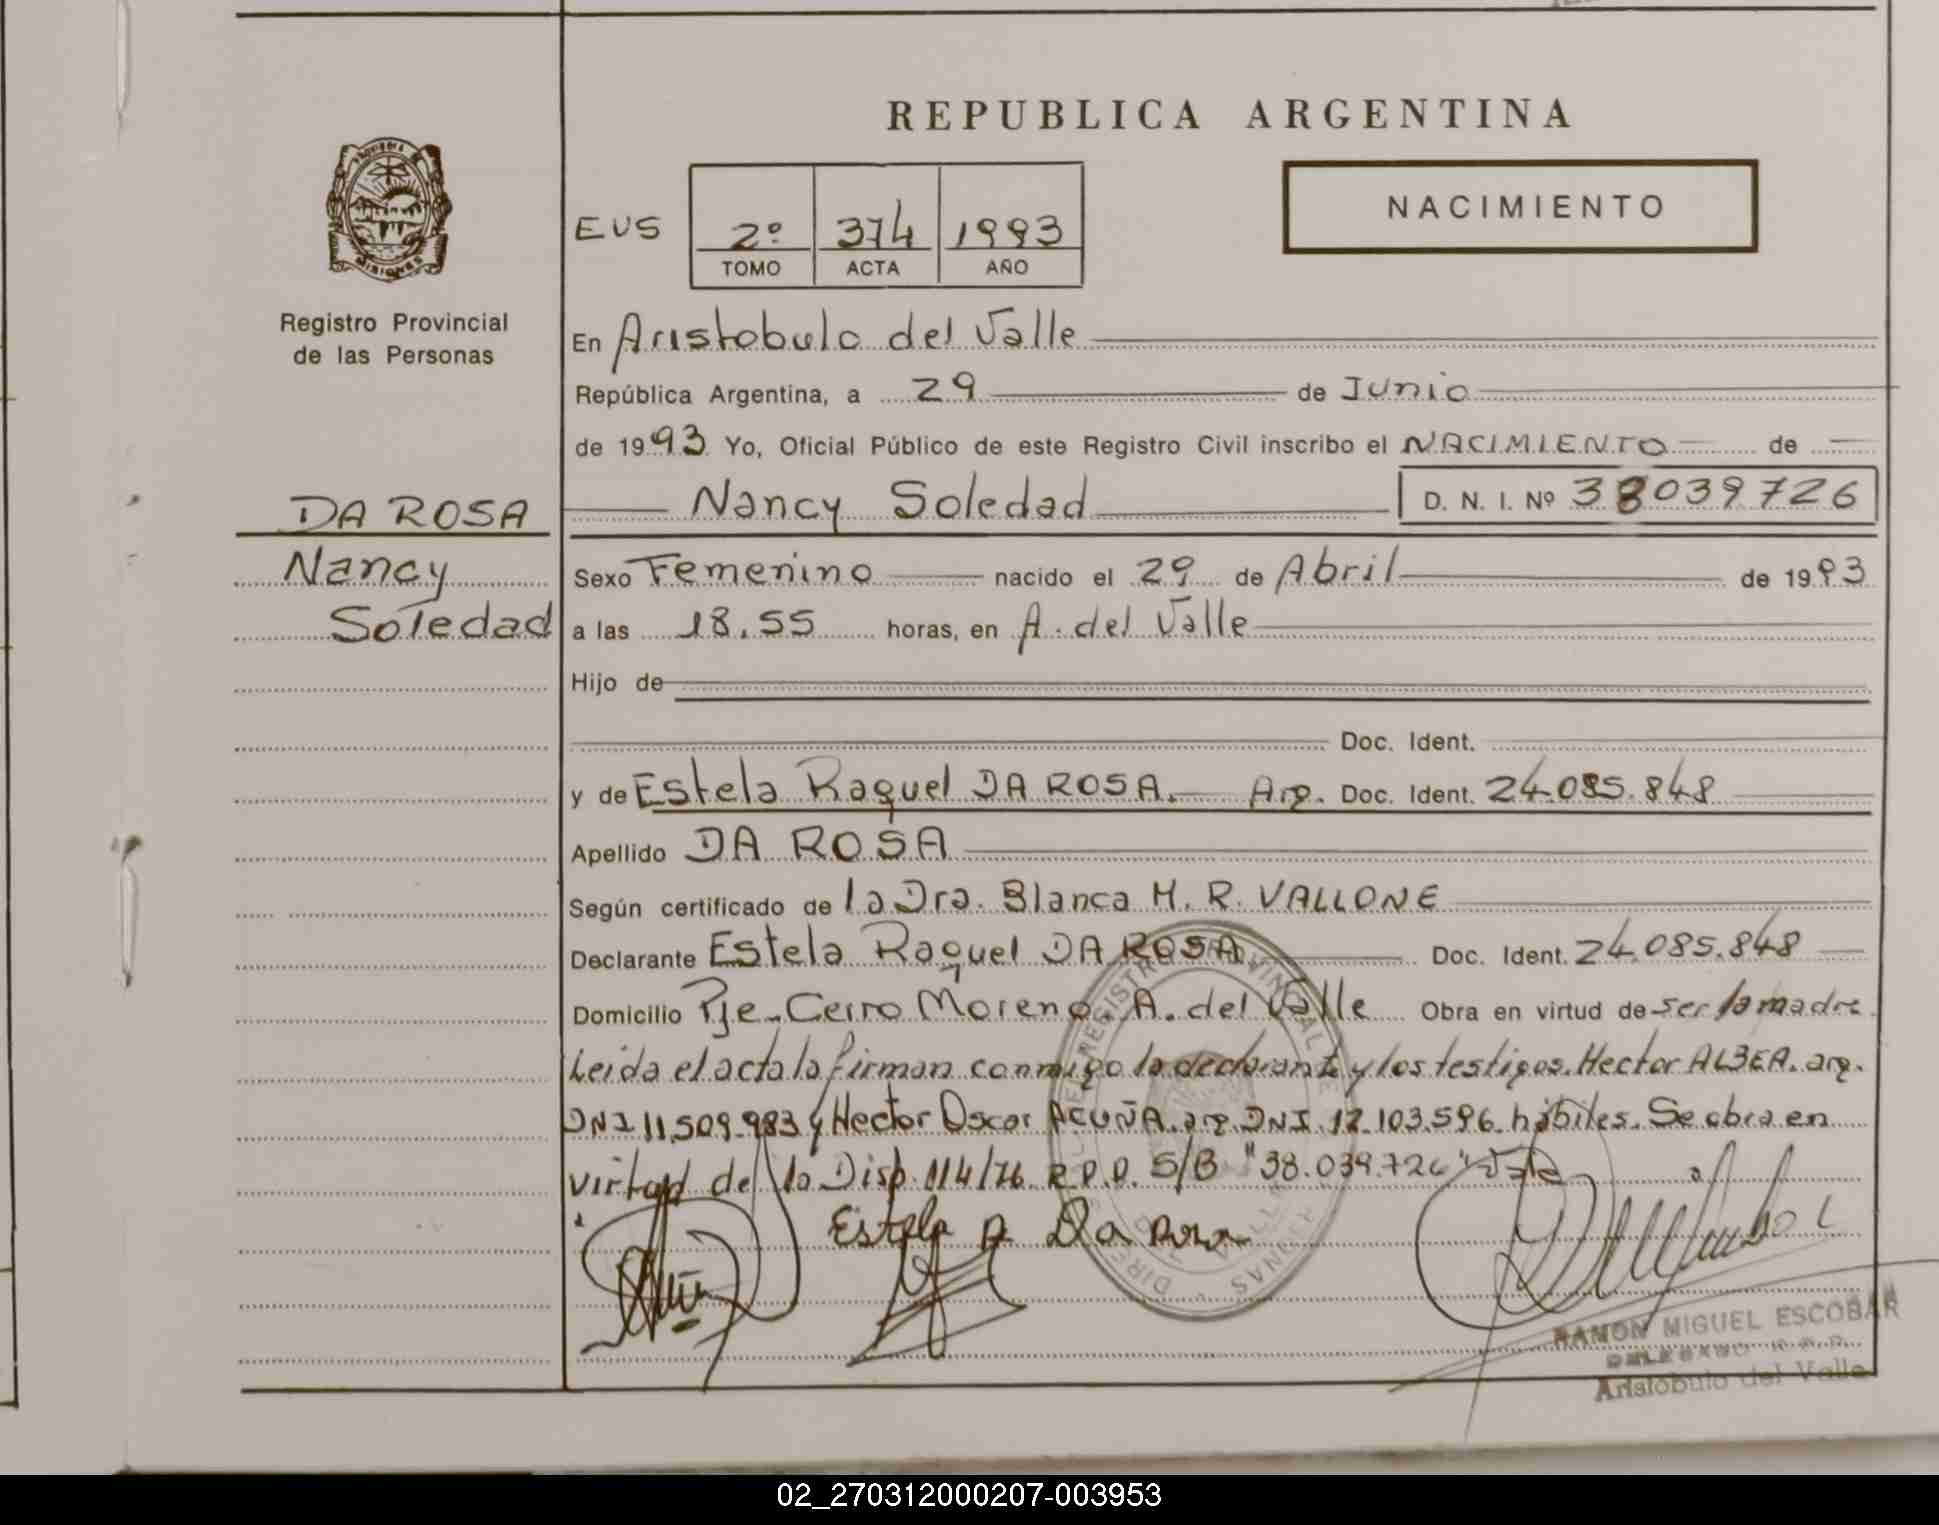 REPUBLICA ARGENTINA
NACIMIENTO
EUS
2º 374 1993
TOMO ACTA AÑO
PROVINCIA DE
MISIONES
Registro Provincial
de las Personas
DA ROSA
Nancy
Soledad
En Aristobulo del Valle
República Argentina, a 29 de Junio
de 1993 Yo, Oficial Público de este Registro Civil inscribo el NACIMIENTO de
Nancy Soledad D. N. I. Nº 38039726
Sexo Femenino nacido el 29 de Abril de 1993
a las 18.55 horas, en A. del Valle
Hijo de
Doc. Ident.
y de Estela Raquel DA ROSA. Arg. Doc. Ident. 24.085.848
Apellido DA ROSA
Según certificado de la Dra. Blanca H. R. VALLONE
Declarante Estela Raquel DA ROSA Doc. Ident. 24.085.848
Domicilio Pje. Cerro Moreno. A. del Valle Obra en virtud de ser la madre
Leida el acta la firman conmigo la declarante y los testigos. Hector ALBEA. arg.
DNI 11.509.983 y Hector Oscar ACUÑA. arg. DNI. 12.103.596. hábiles. Se obra en
virtud de la Disp. 114/76 R.P.P. S/B "38.039.726" Vale
Estela R Da Rosa
RAMON MIGUEL ESCOBAR
DELEGADO R.P.P.
Aristobulo del Valle
02_270312000207-003953